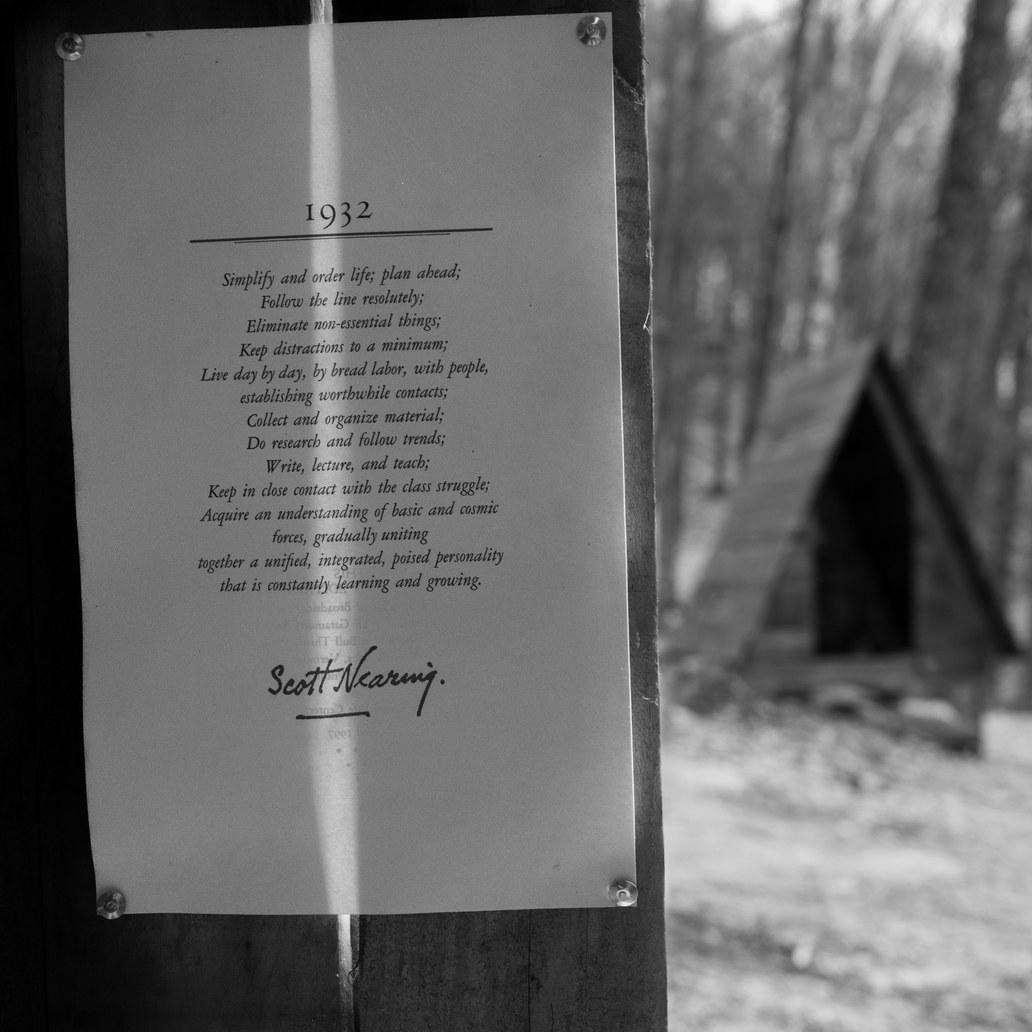 1932
Simplify and order life; plan ahead;
Follow the line resolutely;
Eliminate non-essential things;
Keep distractions to a minimum;
Live day by day, by bread labor, with people,
establishing worthwhile contacts;
Collect and organize material;
Do research and follow trends;
Write, lecture, and teach;
Keep in close contact with the class struggle;
Acquire an understanding of basic and cosmic
forces, gradually uniting
together a unified, integrated, poised personality
that is constantly learning and growing.
Scott Nearing.
1997